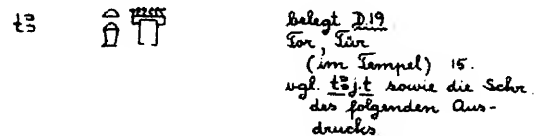 tꜣ belegt D.19
Tor, Tür
(im Tempel) 15.
vgl. tꜣj.t sowie die Schr.
des folgenden Aus-
drucks